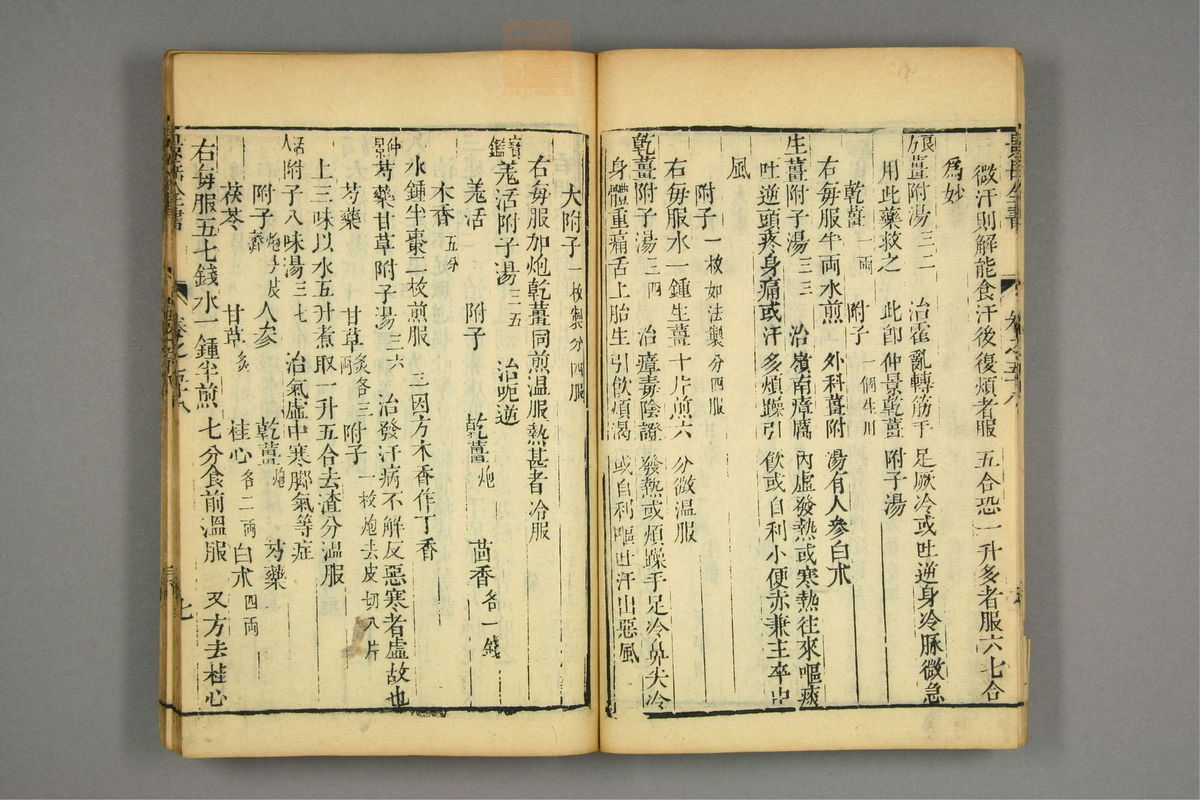 微汗則解能食汗後復煩者服五合恐一升多者服六七合
爲妙
良方薑附湯三二　治霍亂轉筋手足厥冷或吐逆身冷脉微急
用此藥救之　此卽仲景乾薑附子湯
乾薑一兩　附子一個生用
右每服半兩水煎　外科薑附湯有人參白朮
生薑附子湯三三　治嶺南瘴癘內虛發熱或寒熱往來嘔痰
吐逆頭疼身痛或汗多煩躁引飲或自利小便赤兼主卒中
風
附子一枚如法製分四服
右每服水一鍾生薑十片煎六分微溫服
乾薑附子湯三四　治瘴毒陰證發熱或煩躁手足冷鼻尖冷
身體重痛舌上胎生引飲煩渴或自利嘔吐汗出惡風
大附子一枚製分四服
右每服加炮乾薑同煎溫服熱甚者冷服
寶鑑羗活附子湯三五　治呃逆
羗活　附子　乾薑炮　茴香各一錢
木香五分
水鍾半棗二枚煎服　三因方木香作丁香
仲景芍藥甘草附子湯三六　治發汗病不解反惡寒者虛故也
芍藥　甘草炙各三兩　附子一枚炮去皮切八片
上三味以水五升煮取一升五合去渣分溫服
活人附子八味湯三七　治氣虛中寒脚氣等症
附子炮去皮臍　人參　乾薑炮　芍藥
茯苓　甘草炙　桂心各二兩　白朮四兩
右每服五七錢水一鍾半煎七分食前溫服　又方去桂心
卷之五十八
七